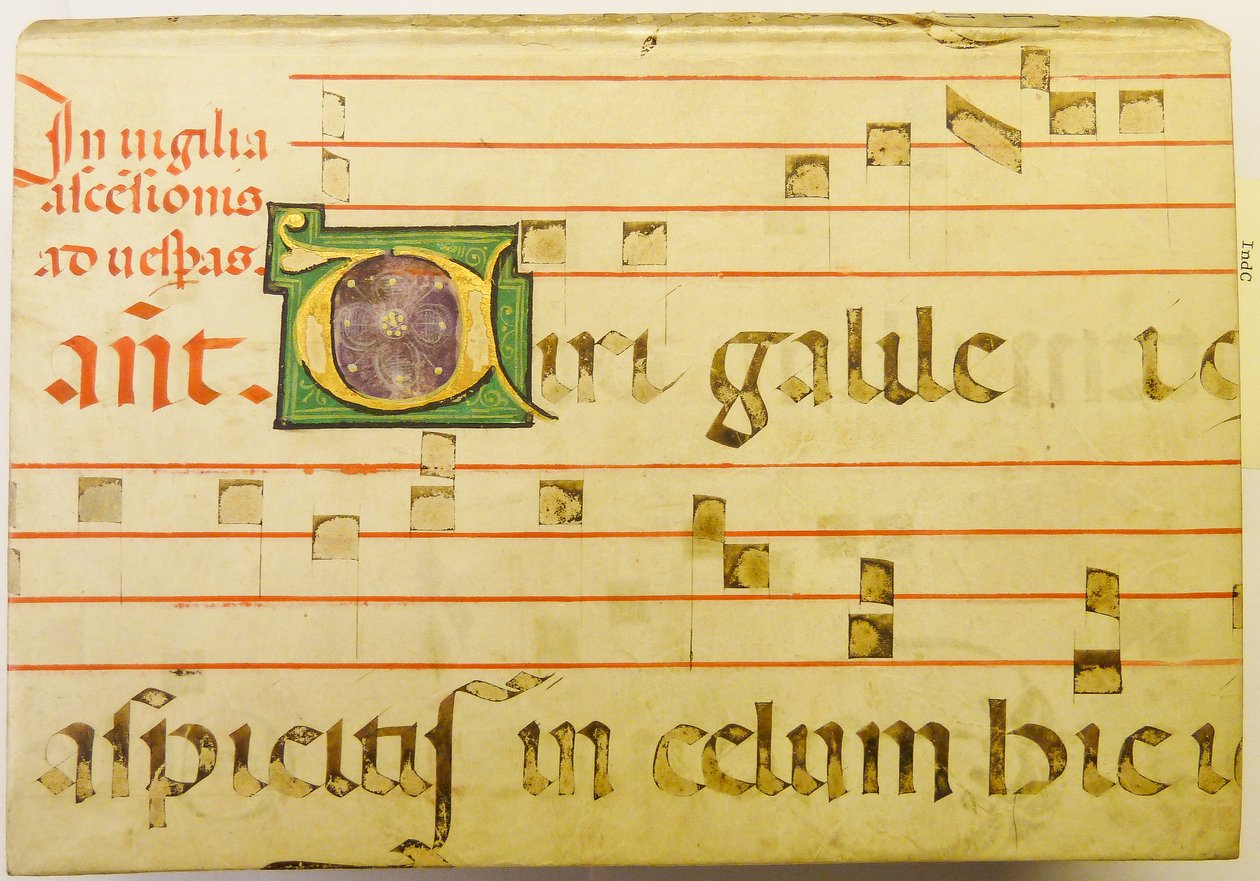 In uigilia
ascēsionis
ad uesꝑas.
an̄t.
Uiri galilei
aspicitis in celum hic
IndC